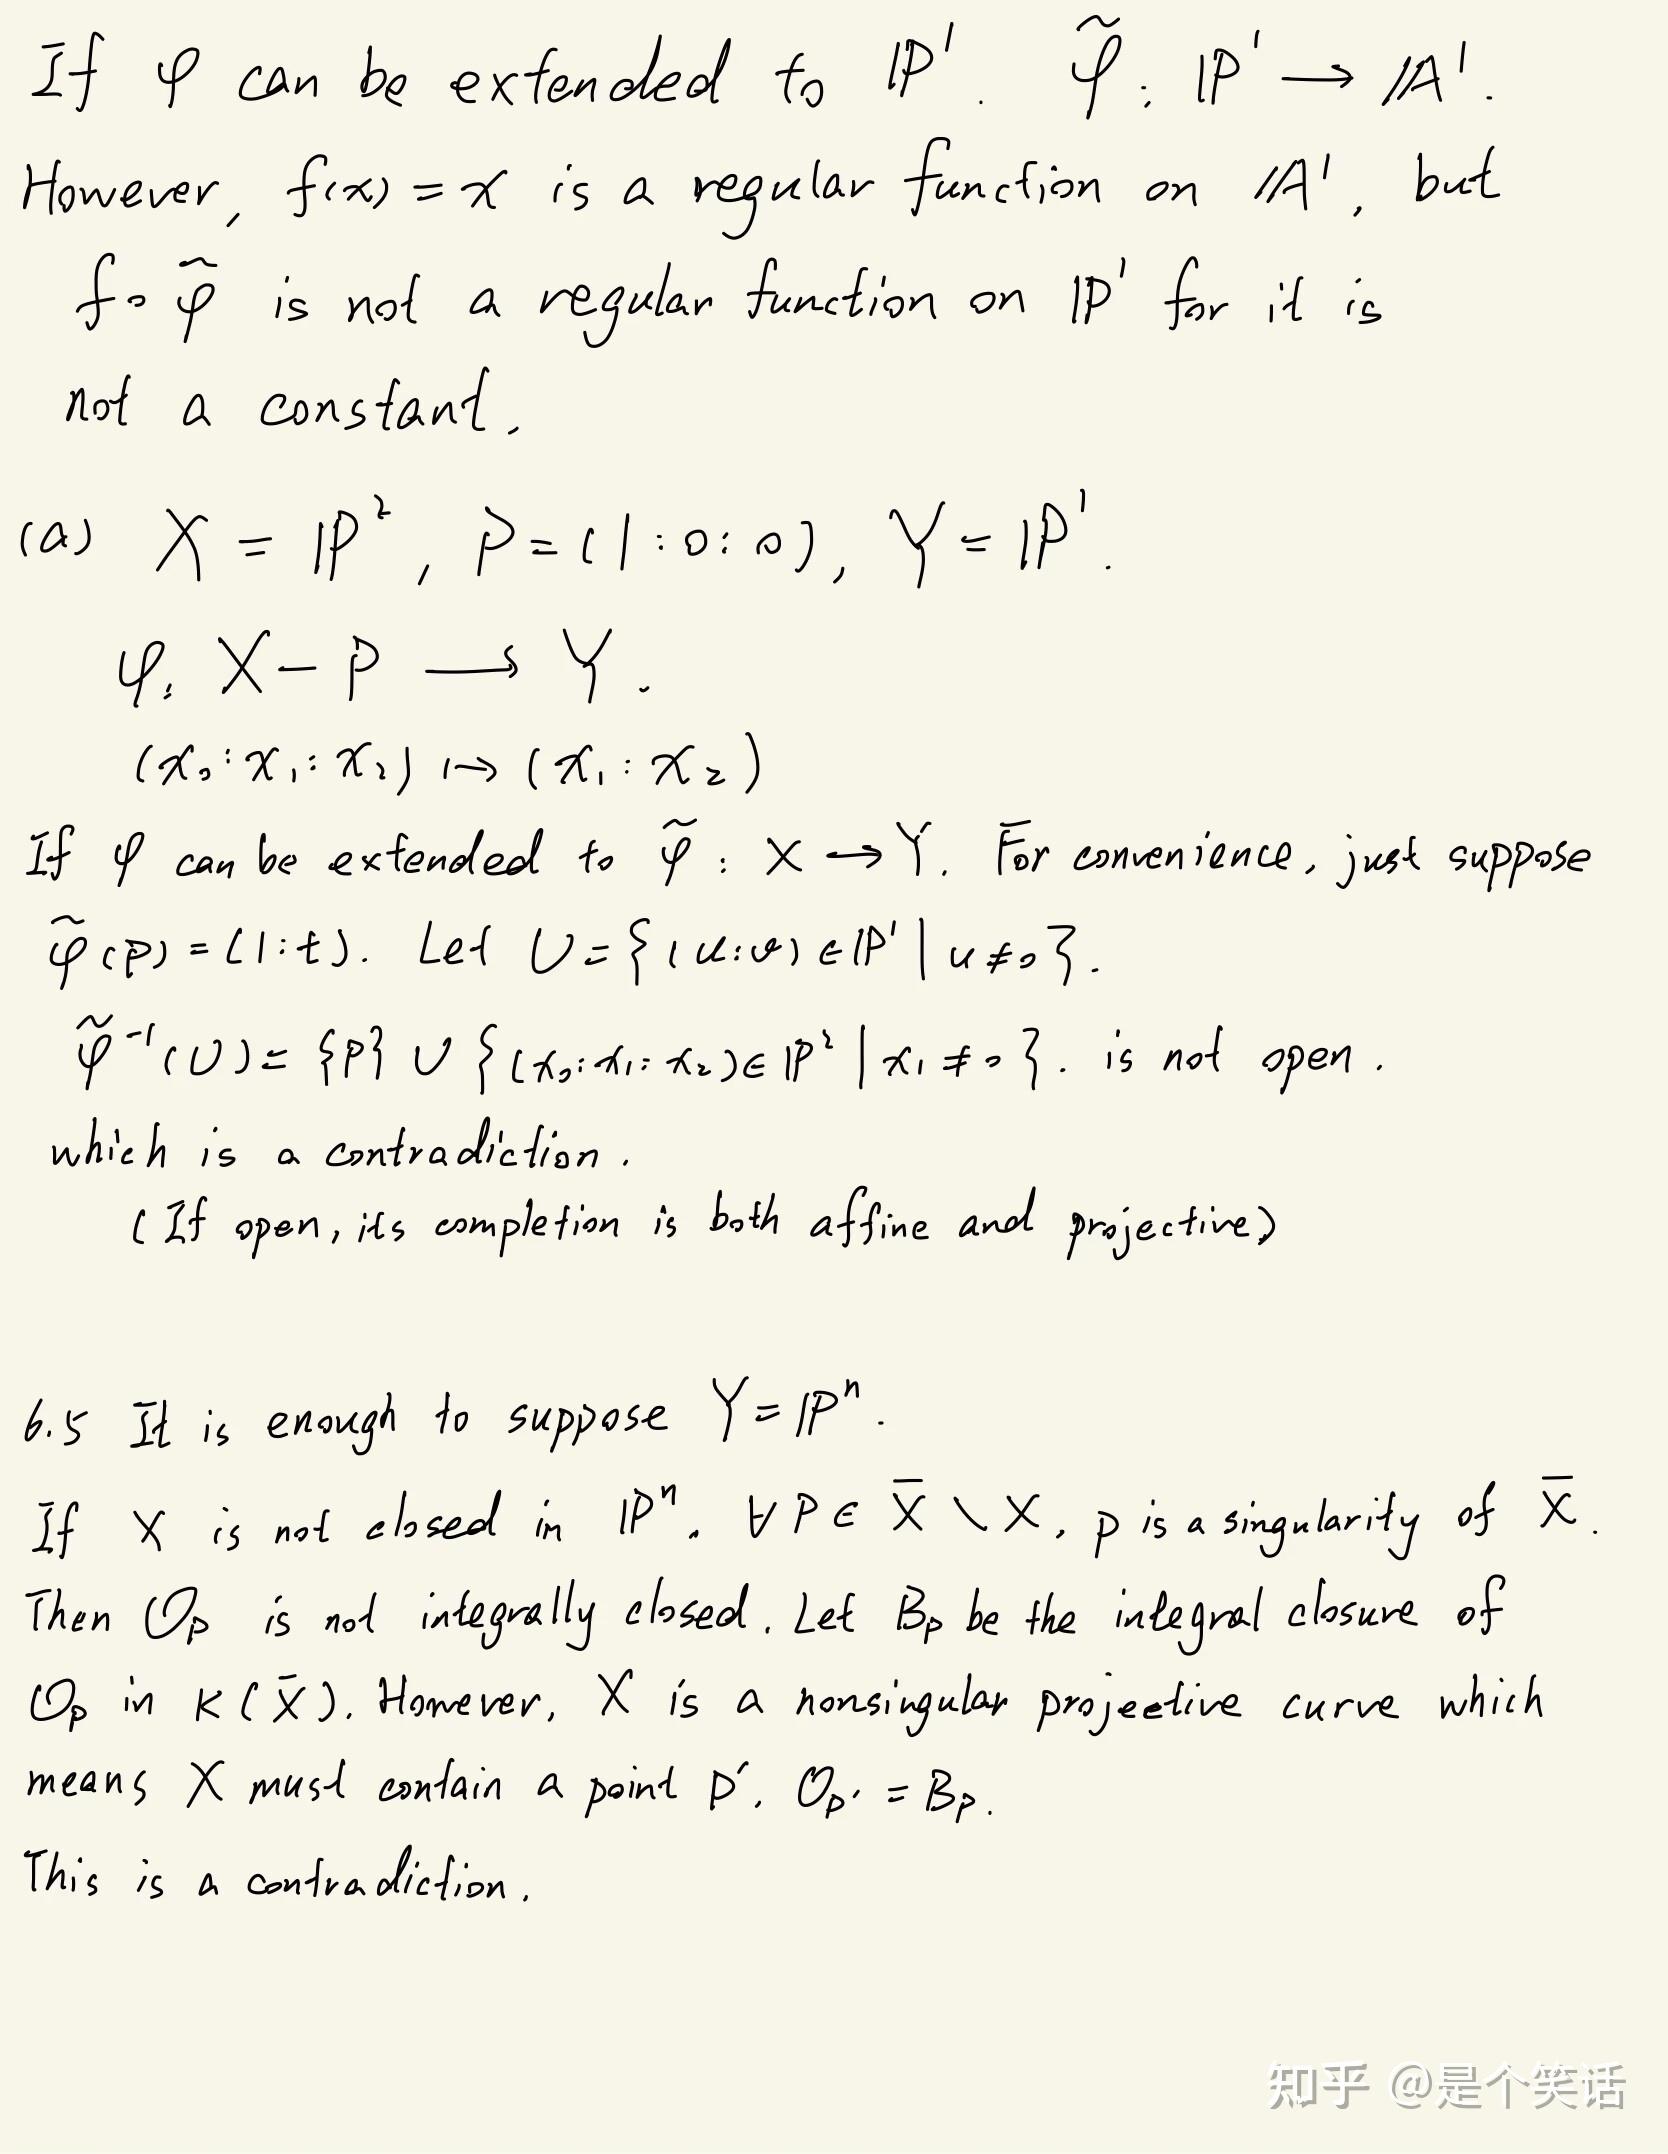 If φ can be extended to ℙ¹. φ̃: ℙ¹ → 𝔸¹.
However, f(x) = x is a regular function on 𝔸¹, but
f∘φ̃ is not a regular function on ℙ¹ for it is
not a constant.
(a) X = ℙ², P = (1:0:0), Y = ℙ¹.
φ: X − P → Y.
(x₀:x₁:x₂) ↦ (x₁:x₂)
If φ can be extended to φ̃: X → Y. For convenience, just suppose
φ̃(P) = (1:t). Let U = {(u:v) ∈ ℙ¹ | u ≠ 0}.
φ̃⁻¹(U) = {P} ∪ {(x₀:x₁:x₂) ∈ ℙ² | x₁ ≠ 0}. is not open.
which is a contradiction.
(If open, its completion is both affine and projective)
6.5 It is enough to suppose Y = ℙⁿ.
If X is not closed in ℙⁿ. ∀ P ∈ X̄ \ X, P is a singularity of X̄.
Then 𝒪_P is not integrally closed. Let B_P be the integral closure of
𝒪_P in K(X̄). However, X is a nonsingular projective curve which
means X must contain a point P′. 𝒪_P′ = B_P.
This is a contradiction.
知乎 @是个笑话